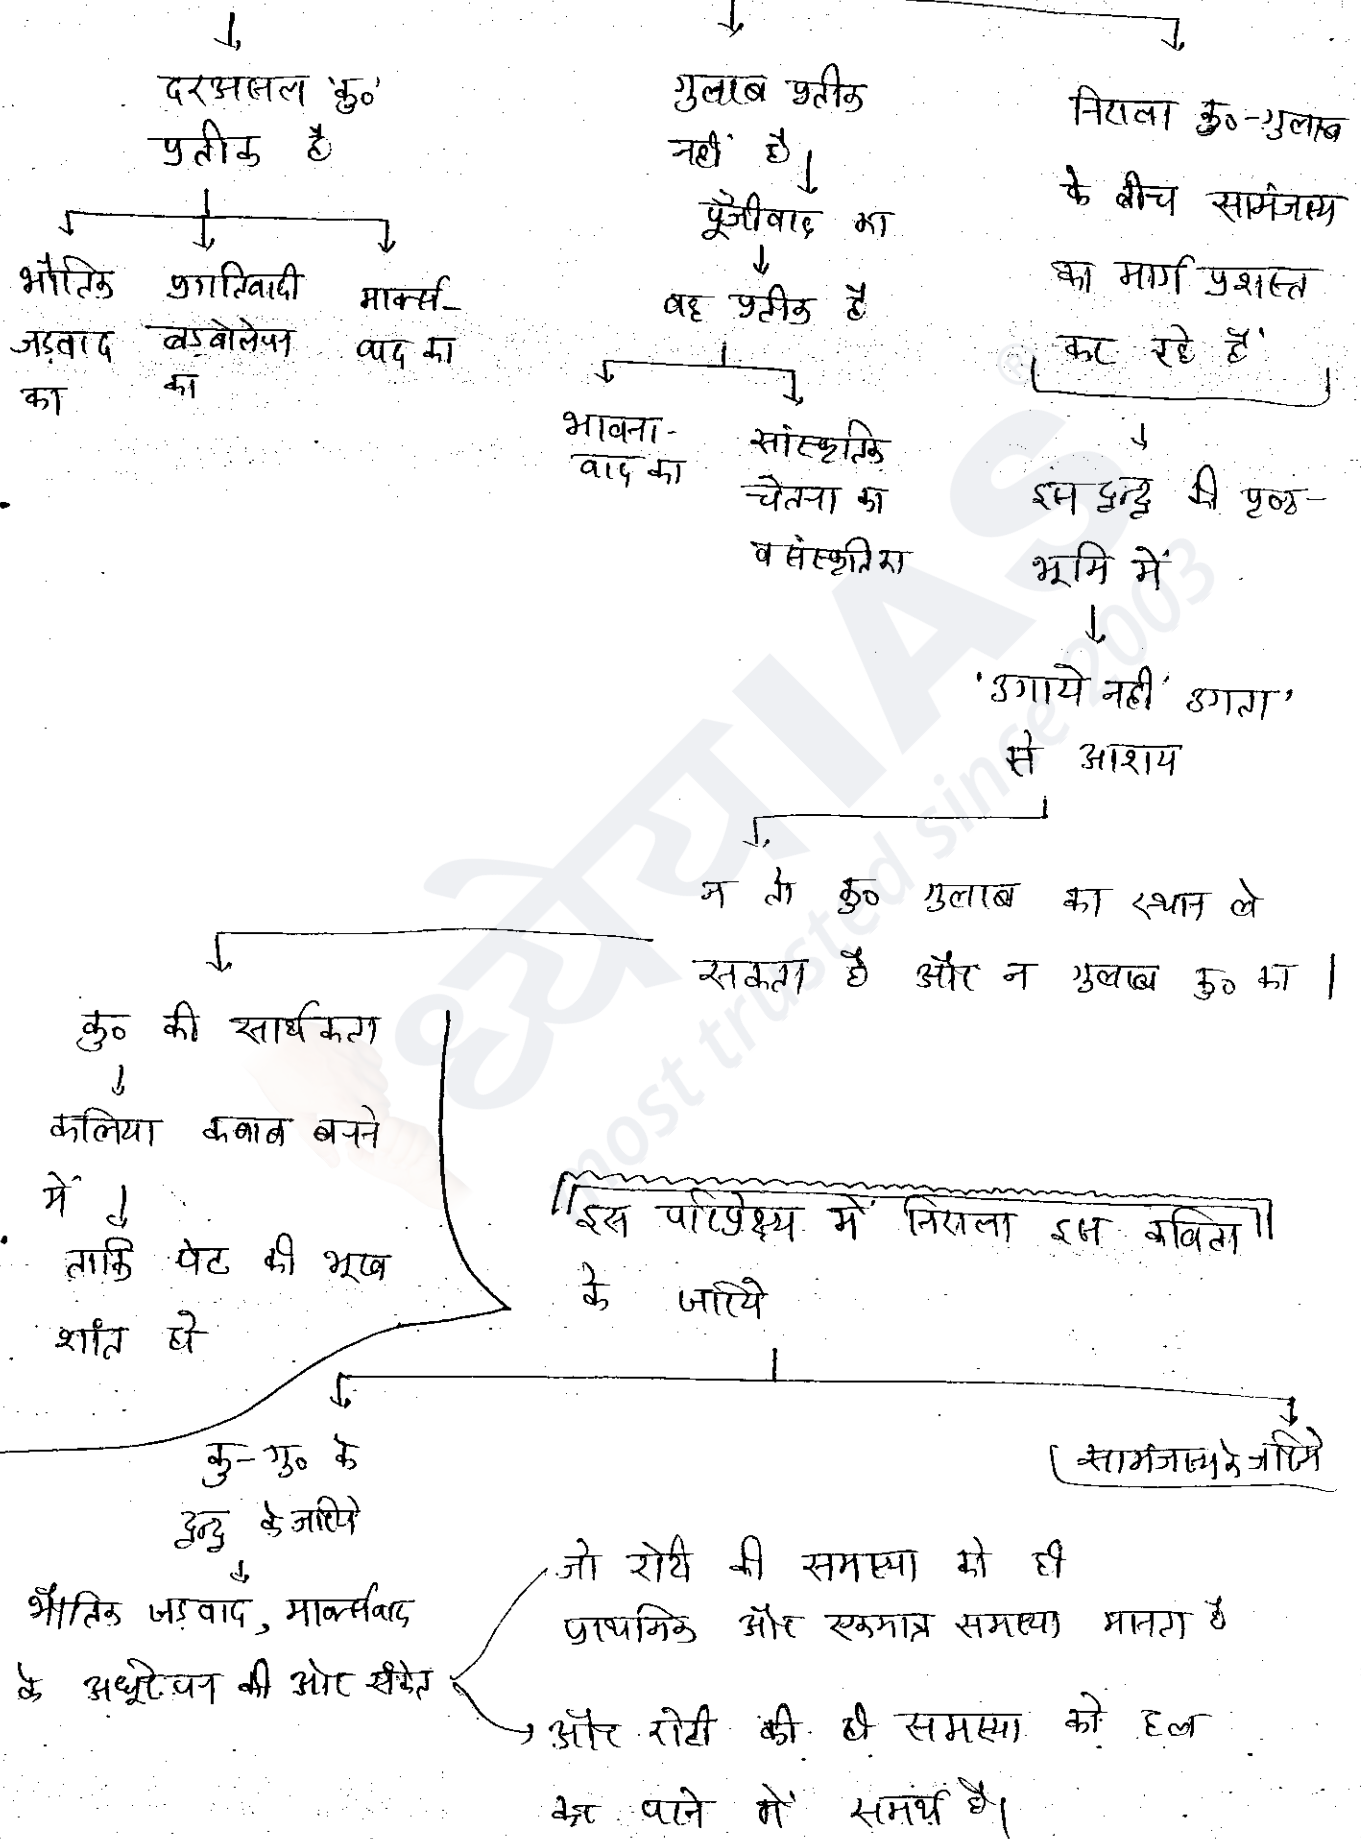 दरअसल 'कु०'
प्रतीक है
भौतिक
जड़वाद
का
प्रगतिवादी
बड़बोलेपन
का
मार्क्स-
वाद का
गुलाब प्रतीक
नहीं है
पूँजीवाद का
वह प्रतीक है
भावना-
वाद का
सांस्कृतिक
चेतना का
व संस्कृति का
निराला कु०-गुलाब
के बीच सामंजस्य
का मार्ग प्रशस्त
कर रहे हैं
इस द्वन्द्व की पृष्ठ-
भूमि में
'उगाये नहीं उगता'
से आशय
न तो कु० गुलाब का स्थान ले
सकता है और न गुलाब कु० का।
कु० की सार्थकता
कलिया कबाब बनने
में
ताकि पेट की भूख
शांत हो
इस परिप्रेक्ष्य में निराला इस कविता
के जरिये
कु-गु० के
द्वन्द्व के जरिये
भौतिक जड़वाद, मार्क्सवाद
के अधूरेपन की ओर संकेत
जो रोटी की समस्या को ही
प्राथमिक और एकमात्र समस्या मानता है
और रोटी की ही समस्या को हल
कर पाने में समर्थ है।
सामंजस्य के जरिये
ध्येय IAS
®
most trusted since 2003